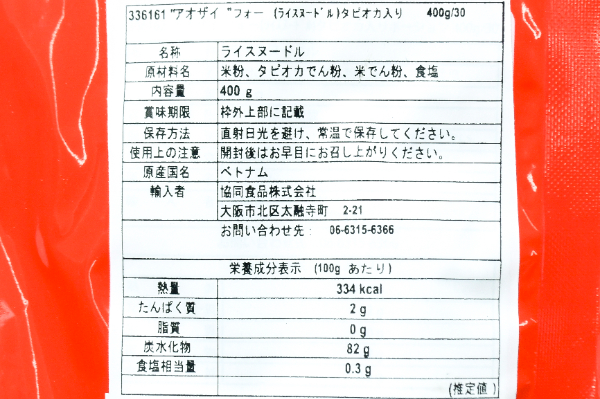 336161 "アオザイ "フォー (ライスヌードル)タピオカ入り 400g/30
名称 ライスヌードル
原材料名 米粉、タピオカでん粉、米でん粉、食塩
内容量 400 g
賞味期限 枠外上部に記載
保存方法 直射日光を避け、常温で保存してください。
使用上の注意 開封後はお早目にお召し上がりください。
原産国名 ベトナム
輸入者 協同食品株式会社
大阪市北区太融寺町 2-21
お問い合わせ先: 06-6315-6366
栄養成分表示 (100g あたり)
熱量 334 kcal
たんぱく質 2 g
脂質 0 g
炭水化物 82 g
食塩相当量 0.3 g
(推定値)